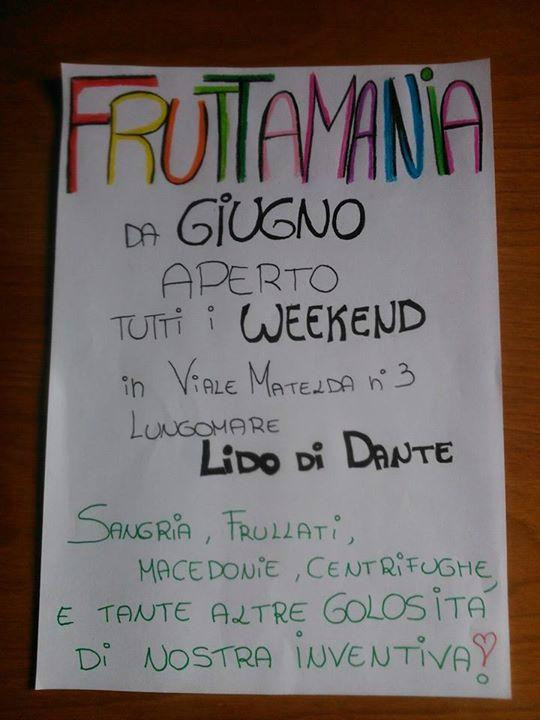 FRUTTAMANIA
DA GIUGNO
APERTO
TUTTI i WEEKEND
in VIALE MATELDA n° 3
LUNGOMARE
LiDO Di DANTE
SANGRIA, FRULLATI,
MACEDONIE, CENTRIFUGHE,
E TANTE ALTRE GOLOSITÀ
DI NOSTRA INVENTIVA!